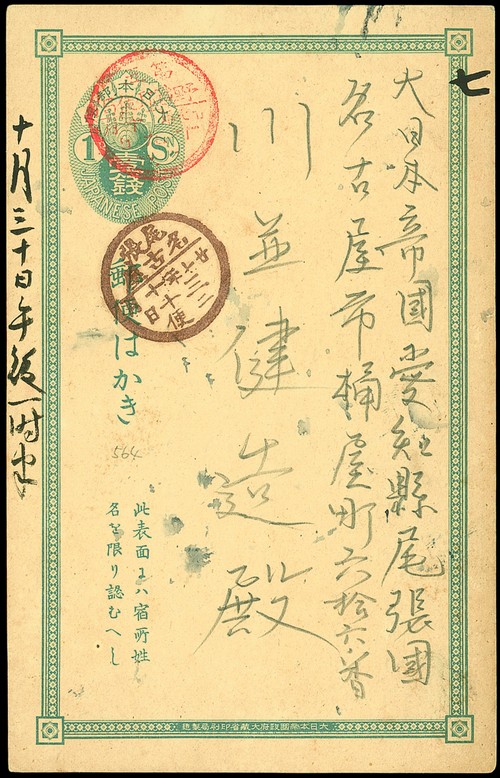 七
大日本帝國愛知縣尾張國
名古屋市桶屋町六拾六番
川並健造殿
大日本
壹錢
1 S.
JAPANESE POST
尾張
名古屋
廿七年
十二
三便
郵便はかき
564
此表面ニハ宿所姓
名を限り認むへし
十月三十日午後一時半
大日本帝國政府大藏省印刷局製造